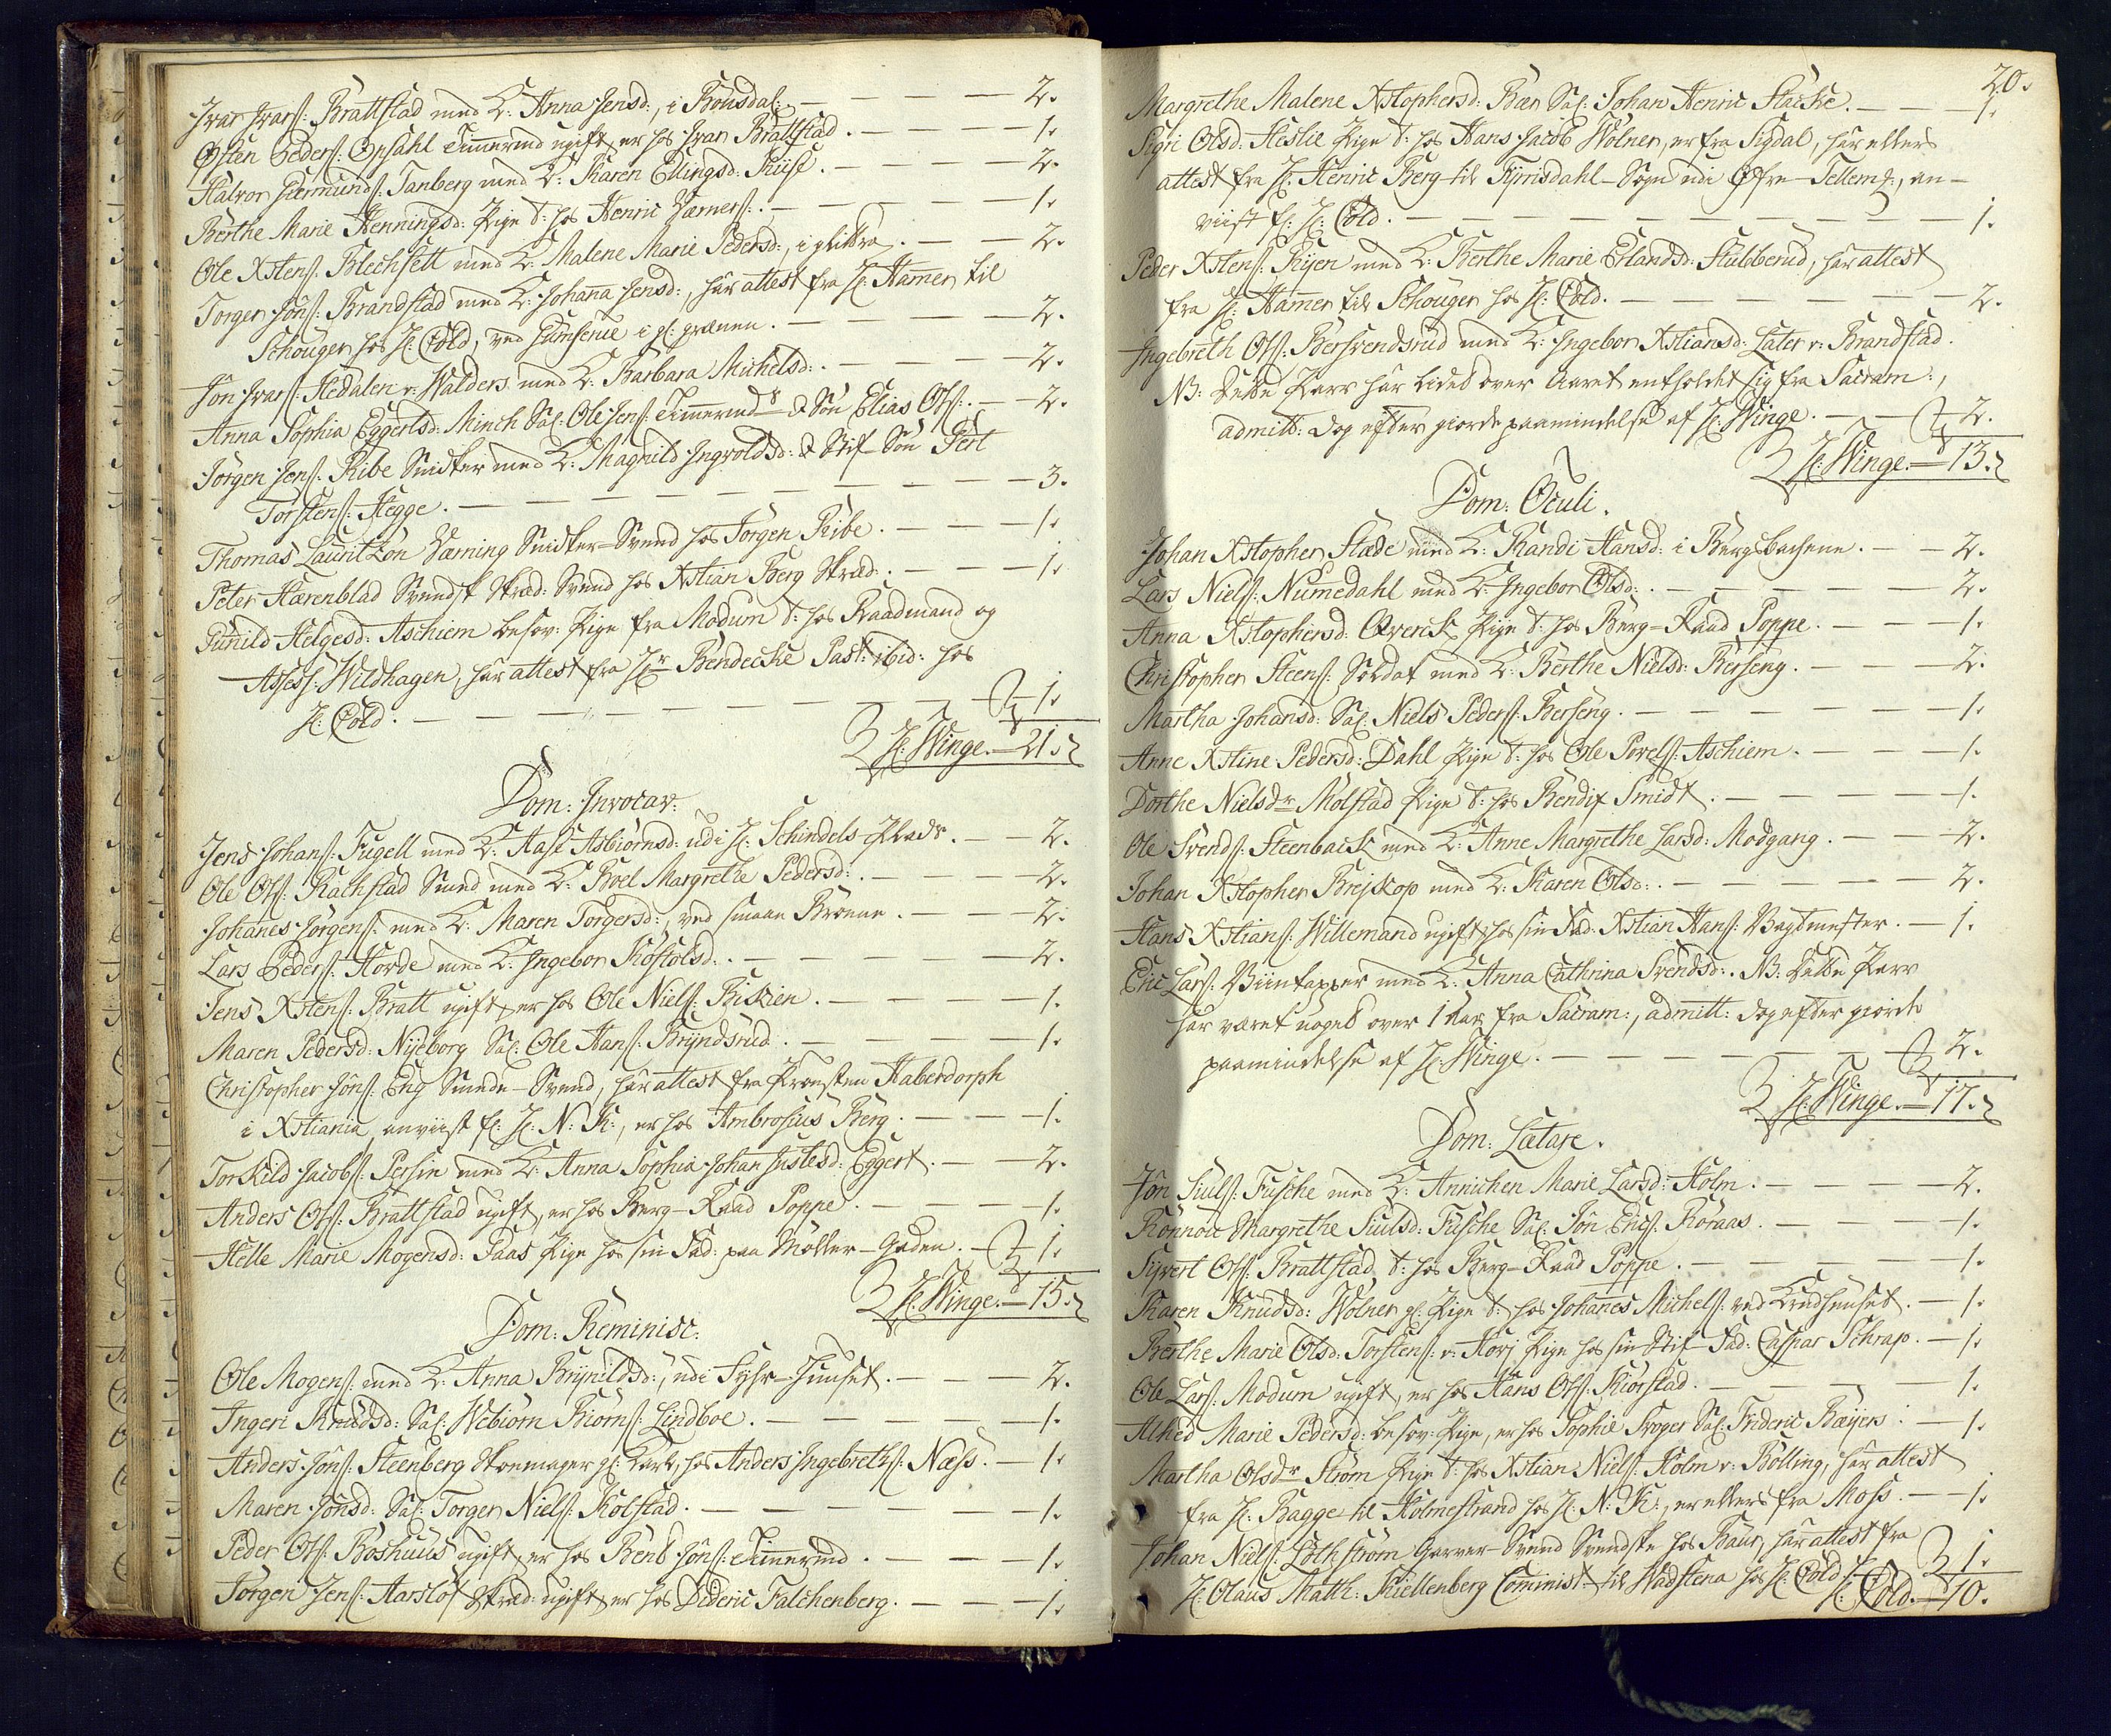 Ivar Ivars: Brattstad med K: Anna Jensd:, i Bousdal: — — — 2.
Østen Peders: Opsahl Timmermd ugift, er hos Ivar Brattstad. — — 1.
Halvor Germunds: Tanberg med K: Karen Ellingsd: Kiise. — — — 2.
Berthe Marie Henningsd: Pige t: hos Henric Værners: — — — 1.
Ole Xstens: Blechsett med K: Malene Marie Pedersd:, i — — 2.
Torger Jôns: Brandstad med K: Johana Jensd:, har attest fra H: Hamer til
Schouger hos H: Cold, ved Gumserue i gl: grænen. — — — 2.
Jôn Ivars: Hedalen v: Walders med K: Barbara Michelsd: — — — 2.
Anna Sophia Eggertsd: Minch Sal: Ole Jens: Timmermds & Sön Elias Ols: — 2.
Jörgen Jens: Ribe Snidker med K: Magnild Ingvoldsd: & Stif-Sön Gert
Torstens: Hegge. — — — — — — — 3.
Thomas Lauritzôn Værning Snidker-Svend hos Jörgen Ribe. — — — 1.
Peter Hærenblad Svendsk Skræd: Svend hos Xstian Berg Skræd: — — — 1.
Gunild Helgesd: Aschiem besov: Pige fra Modum t: hos Raadmand og
Assess: Wildhagen, har attest fra Hr Bendecke Past: ibid: hos
H: Cold. — — — — — — — 1.
H: Winge. — 21.
Dom: Invocav:
Jens Johans: Fugell med K: Aase Asbiörnsd: udi H: Schindels Plads. — — 2.
Ole Ols: Rachstad Smed med K: Boel Margrethe Pedersd: — — — 2.
Johanes Jörgens: med K: Maren Torgersd:, ved smaae Broene. — — — 2.
Lars Peders: Horde med K: Ingebor Rostolsd: — — — 2.
Jens Xstens: Bratt ugift, er hos Ole Niels: Biskien. — — — 1.
Maren Pedersd: Nyeborg Sal: Ole Hans: Bryndsrud. — — — 1.
Christopher Jôns: Eng Smede-Svend, har attest fra Provsten Haberdorph
i Xstiania, anviist fr: H: N: K:, er hos Ambrosius Berg. — — — 1.
Torkild Jacobs: Persin med K: Anna Sophia Johan Justesd: Eggert. — — 2.
Anders Ols: Brattstad ugift, er hos Berg-Raad Poppe. — — — 1.
Helle Marie Mogensd: Paas Pige hos sin Fad: paa Möller-Gaden. — 1.
H: Winge. — 15.
Dom: Reminisc:
Ole Mogens: med K: Anna Brynildsd:, udi Syge-Huuset. — — — 2.
Ingeri Knudsd: Sal: Webiörn Biörns: Lindboe. — — — 1.
Anders Jôns: Steenberg Skoemager gl: Karl, hos Anders Ingebreths: Næss. — 1.
Maren Jônsd: Sal: Torger Niels: Kolstad. — — — 1.
Peder Ols: Boshuus ugift, er hos Bent Jôns: Timmermd. — — — 1.
Jörgen Jens: Aarslof Skræd: ugift, er hos Dideric Falchenberg. — — — 1.
20.
Margrethe Malene Xstophersd: Bær Sal: Johan Henric Stacke. — — 1.
Sigri Olsd: Heslie Pige t: hos Hans Jacob Wolner, er fra Sigdal, har ellers
attest fra H: Henric Berg til Kyrrisdahl-Sogn udi Öfre-Tellem:, an-
viist fr: H: Cold. — — — — — — — 1.
Peder Xstens: Ryen med K: Berthe Marie Erlandsd: Stubberud, har attest
fra H: Hamer til Schouger hos H: Cold. — — — — — 2.
Ingebreth Ols: Bersvendsrud med K: Ingebor Xstiansd: Later v: Brandstad.
NB: Dette Parr har lidet over Aaret entholdet sig fra Sacram:,
admitt: dog efter giorde paamindelse af H: Winge. — — 2.
H: Winge. — 13.
Dom: Oculi.
Johan Xstopher Stæde med K: Randi Hansd: i Bergsbachene. — — 2.
Lars Niels: Numedahl med K: Ingebor Olsd: — — — — 2.
Anna Xstophersd: Qverck Pige t: hos Berg-Raad Poppe. — — — 1.
Christopher Steens: Soldat med K: Berthe Nielsd: Berseng. — — — 2.
Martha Johansd: Sal: Niels Peders: Berseng. — — — — 1.
Anne Xstine Pedersd: Dahl Pige t: hos Ole Povels: Aschiem. — — — 1.
Dorthe Nielsdr Molstad Pige t: hos Bendix Smidt. — — — 1.
Ole Svends: Steenback med K: Anne Margrethe Larsd: Modgang. — — 2.
Johan Xstopher Brejskop med K: Karen Olsd: — — — — 2.
Hans Xstians: Willemand ugift, hos sin Fad: Xstian Hans: Vagtmester. — 1.
Eric Lars: Viintapper med K: Anna Cathrina Svendsd: NB: Dette Parr
har været noget over 1 Aar fra Sacram:, admitt: dog efter giorde
paamindelse af H: Winge. — — — — — 2.
H: Winge. — 17.
Dom: Lætare.
Jôn Siuls: Fusche med K: Annichen Marie Larsd: Holm. — — — 2.
Rönnou Margrethe Siulsd: Fusche Sal: Jôn Erics: Roraas. — — — 1.
Syvert Ols: Brattstad, t: hos Berg-Raad Poppe. — — — 1.
Karen Knudsd: Wolner gl: Pige t: hos Johanes Michels: ved Krudhuuset. — 1.
Berthe Marie Olsd: Torstens: v: Horj Pige hos sin Stif-Fad: Caspar Schrap. — 1.
Ole Lars: Modum ugift, er hos Hans Ols: Kiörstad. — — — 1.
Alhed Marie Pedersd: besov: Pige, er hos Sophie Svoger Sal: Frideric Bæijers: — 1.
Martha Olsdr Ström Pige t: hos Xstian Niels: Holm v: Bölling, har attest
fra H: Bagge til Holmestrand hos H: N: K:, er ellers fra Moss. — — 1.
Johan Niels: Löthström Garver-Svend Svendske hos Baur, har attest fra
H: Olaus Matth: Kiellenberg Cominist: til Wadstena hos H: Cold. 1.
H: Cold. — 10.